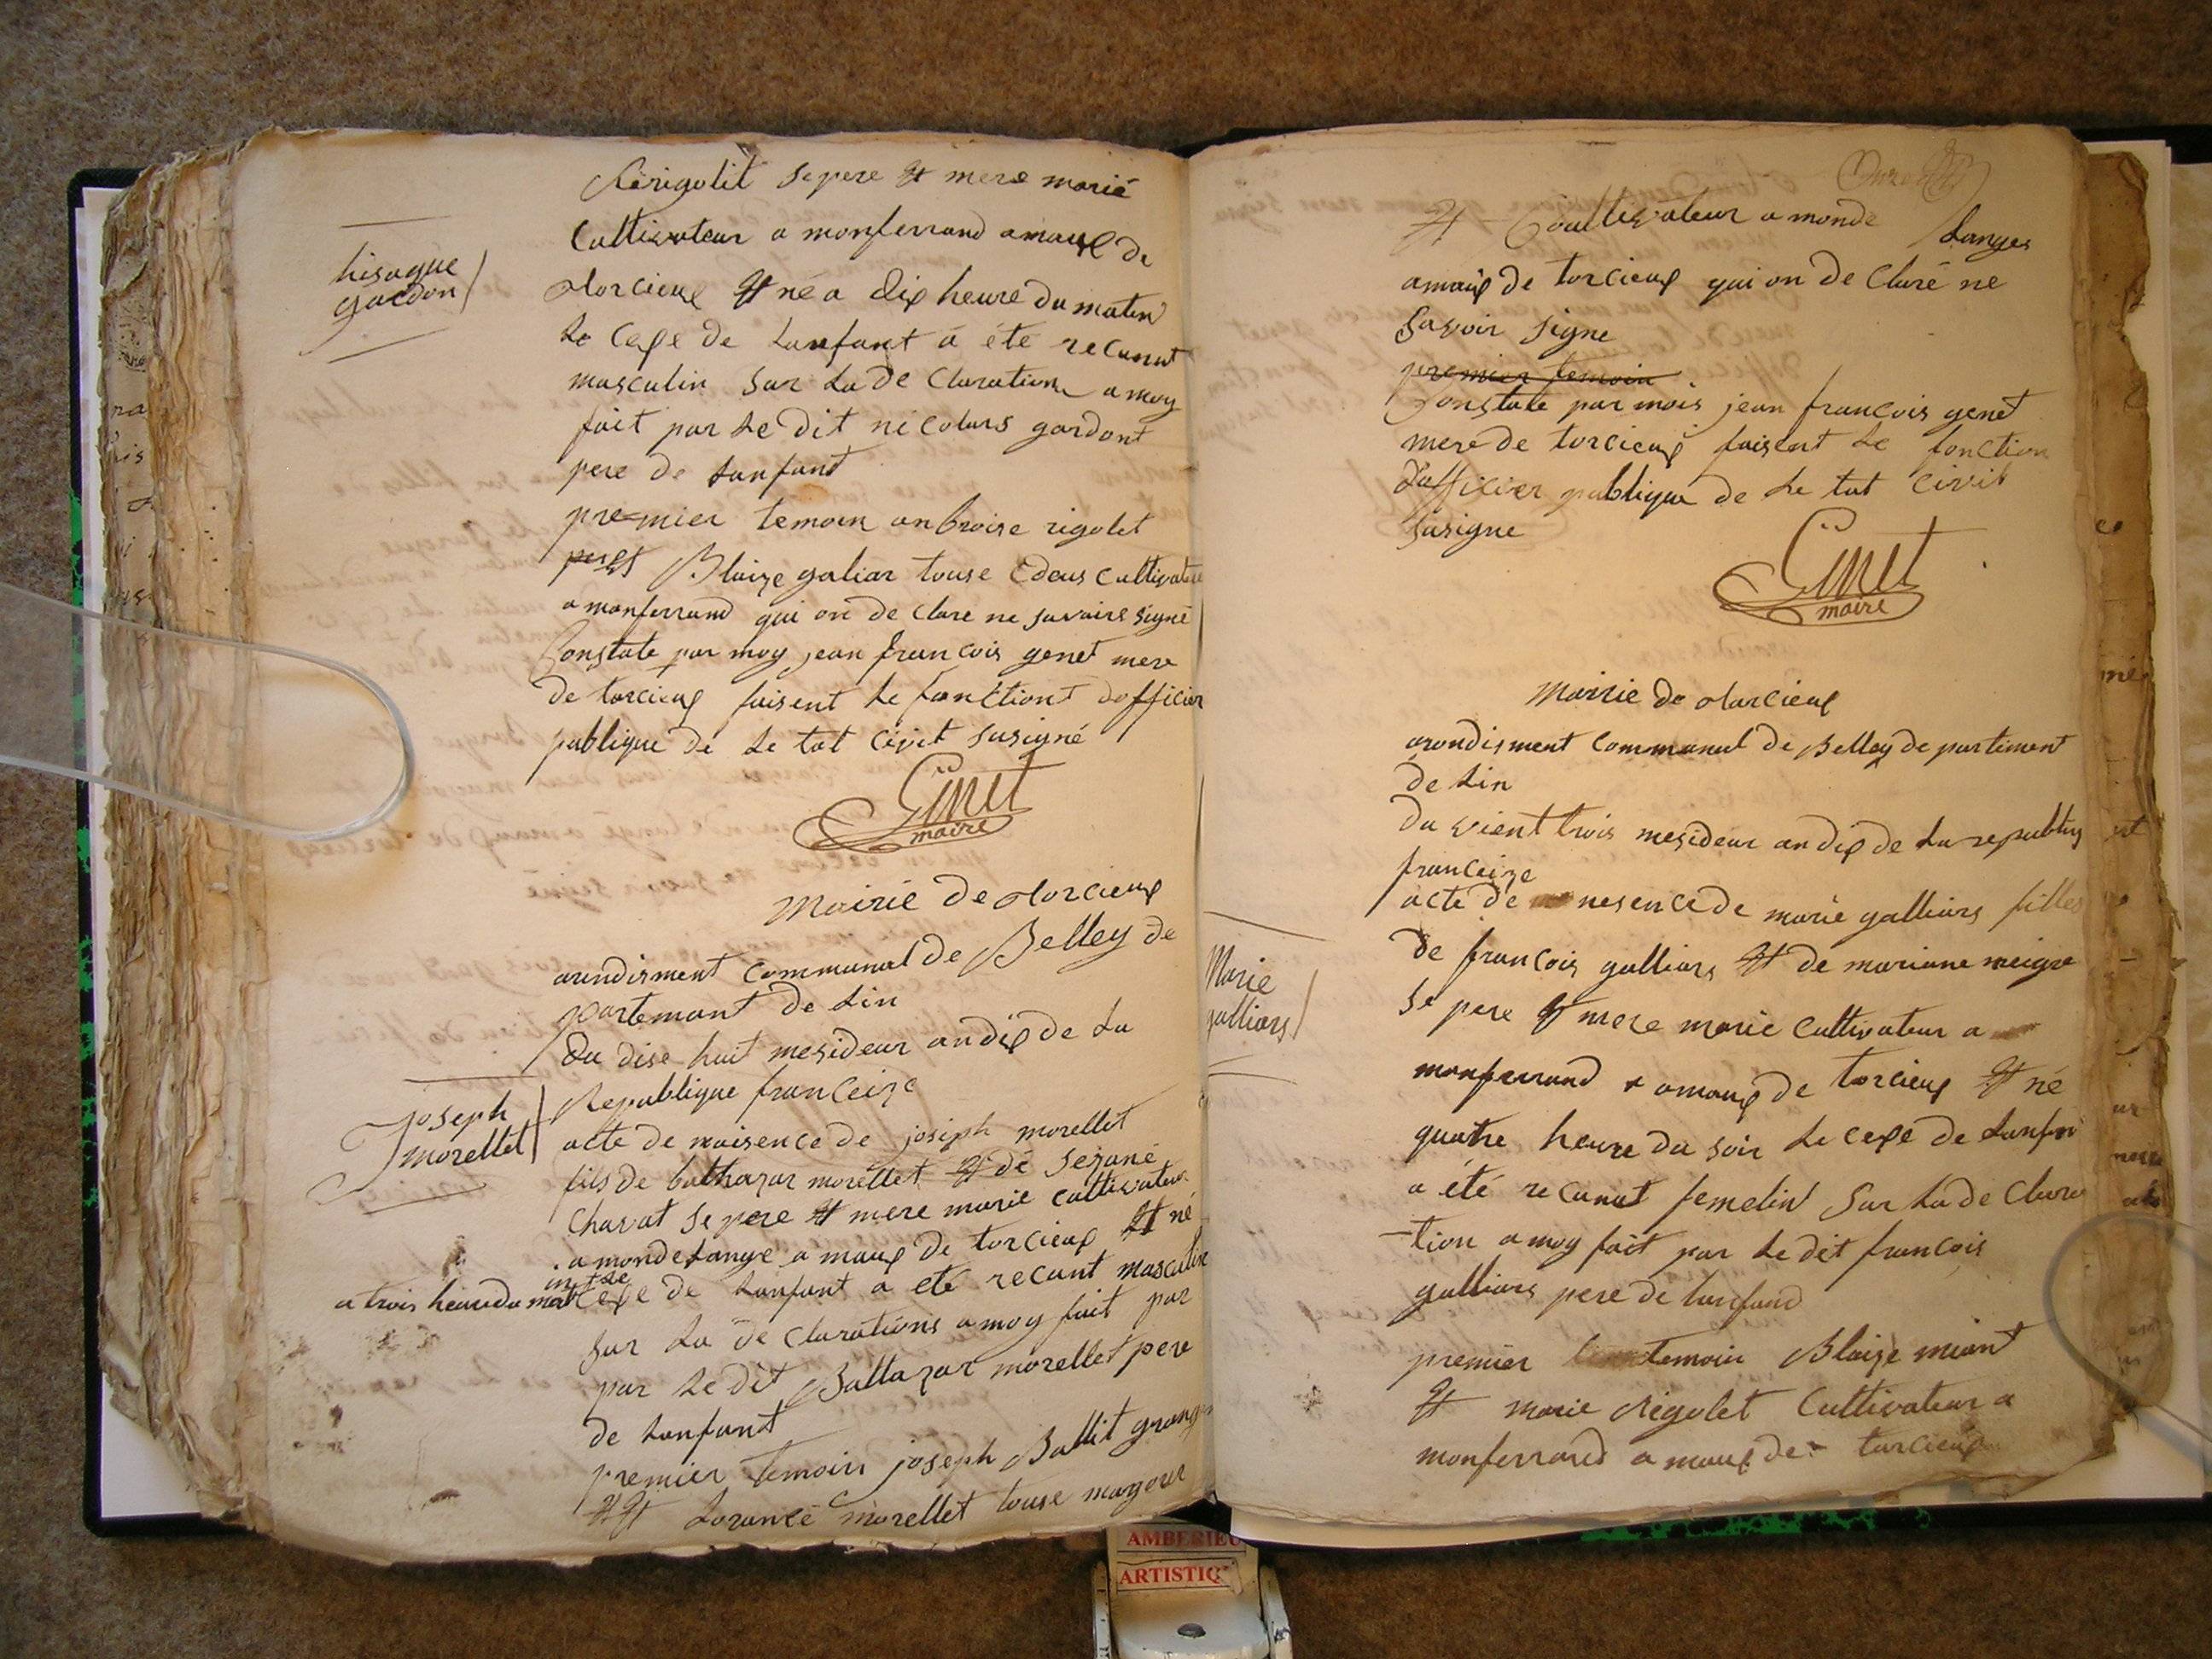 hisaque
gardon
Rérigolit se pere et mere marié
Cultivateur a monferrand amaux de
torcieux et né a dix heure du matin
Le cexe de Lanfant a été recunut
masculin Sur La de Claration a moy
fait par Le dit nicolars gardont
pere de Lanfant
premier temoin anbroise rigolet
Blaize galiar touse deus Cultivateur
a monferrand qui on de Clare ne savoire signé
Constate par moy jean francois genet mere
de torcieux faisent Le fonctiont dofficier
publique de Le tat civit susigné
Genet
maire
Mairie de torcieux
arendisment communal de Belley de
partemant de Lin
Du dise huit mesideur an dix de La
Republique franceize
joseph
morellet
acte de naisence de joseph morellet
fils de balthazar morellet et de
Chavat se pere et mere marié cultivateur
a monde Lange a maux de torcieux et né
a trois heure du matin Le cexe de Lanfant a eté recunt masculin
Sur La de Clarations a moy fait par
par Le dit Baltazar morellet pere
de Lanfant
premier temoin joseph Ballit
et Lorance morellet touse mageur
et Coultivateur a monde Langes
amaux de torcieux qui on de Claré ne
Savoir signe
premier temoin
Constate par mois jean francois genet
mere de torcieux faisent Le fonction
dofficier publique de Le tat Civit
susigne
Genet
maire
Mairie de torcieux
arondisment Communal de Belley de partiment
de Lin
Du vient trois mesideur an dix de La republiq
franceize
Marie
galliars
acte de nesence de marie galliars filles
de francois galliars et de mariane meigre
se pere et mere marié Cultivateur a
monferrand a maux de torcieux et né
quatre heure du soir Le cexe de Lanfan
a été recunut femelin Sur La de Clara
-tion a moy fait par Le dit francois
galliars pere de Lanfand
premier temoin Blaize miant
et marie Rigolet Cultivateur a
monferrand a maux de torcieux
AMBERIEU
ARTISTIQ